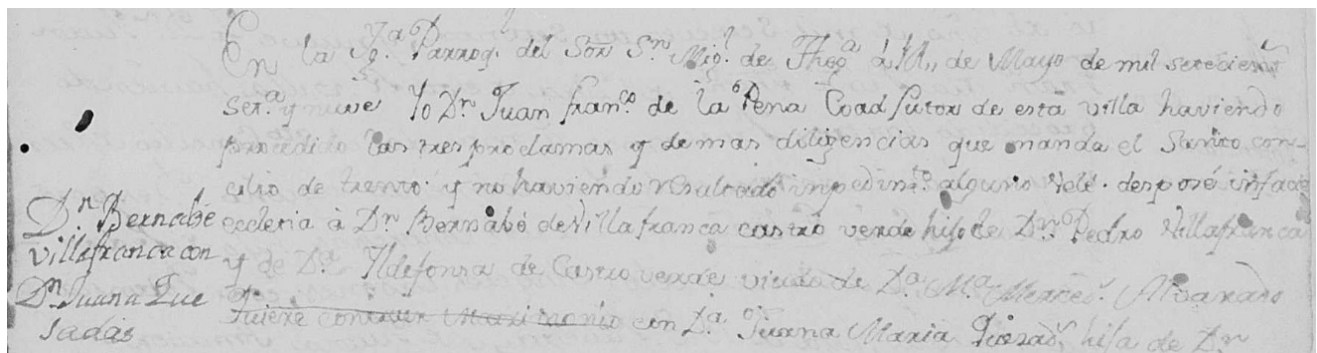 Dn Bernabé
Villafranca con
Dn Juana Que
sadas
En la Yga. Parroq. del Sor Sn. Migl. de de Mayo de mil setecient
set.a y nueve Yo Dn. Juan Franco de la Pena Coadjutor de esta villa haviendo
procedido las tres proclamas y demas diligencias que manda el Santo con-
cilio de trento. y no haviendo resultado inpedimto alguno Velé. desposé infacie
eccleria à Dn Bernabé de Villafranca castro verde hijo de Dn. Pedro Villafranca
y de Da. Yldefonsa de Castro verde viudo de Da. Ma. Merces. Alvarado
quiere contraer Matrimonio con Da. Juana Maria hija de Dn